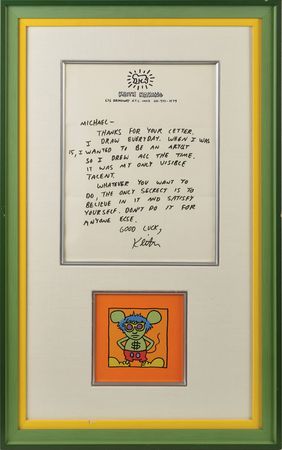 KEITH HARING
MICHAEL—
THANKS FOR YOUR LETTER.
I DRAW EVERYDAY. WHEN I WAS
15, I WANTED TO BE AN ARTIST
SO I DREW ALL THE TIME.
IT WAS MY ONLY VISIBLE
TALENT.
WHATEVER YOU WANT TO
DO, THE ONLY SECRECT IS TO
BELIEVE IN IT AND SATISFY
YOURSELF. DON'T DO IT FOR
ANYONE ELSE.
GOOD LUCK,
Keith
$